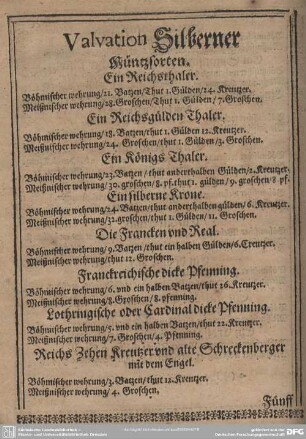 Valvation Silberner
Müntzsorten.
Ein Reichsthaler.
Böhmischer wehrung/21. Batzen/Thut 1. Gülden/24. Kreutzer.
Meißnischer wehrung/28. Groschen/Thut 1. Gülden/7. Groschen.
Ein Reichsgülden Thaler.
Böhmischer wehrung/18. Batzen/thut 1. Gülden 12. Kreutzer.
Meißnischer wehrung/24. Groschen/thut 1. Gülden/3. Groschen.
Ein Königs Thaler.
Böhmischer wehrung/23. Batzen/thut anderthalben Gülden/2. Kreutzer.
Meißnischer wehrung/30. groschen/8. pf. thut 1. gülden/9. groschen/8 pf.
Ein silberne Krone.
Böhmischer wehrung/24. Batzen/thut anderthalben gülden/6. Kreutzer.
Meißnischer wehrung/32. groschen/thut 1. Gülden/11. Groschen.
Die Francken vnd Real.
Böhmischer wehrung/9. Batzen/thut ein halben Gülden/6. Creutzer.
Meißnischer wehrung/thut 12. Groschen.
Franckreichische dicke Pfenning.
Böhmischer wehrung/6. vnd ein halben Batzen/thut 26. Kreutzer.
Meißnischer wehrung/8. Groschen/8. pfenning.
Lothringische oder Cardinal dicke Pfenning.
Böhmischer wehrung/5. vnd ein halben Batzen/thut 22. Kreutzer.
Meißnischer wehrung/7. Groschen/4. Pfenning.
Reichs Zehen Kreutzer vnd alte Schreckenberger
mit dem Engel.
Böhmischer wehrung/3. Batzen/thut 12. Kreutzer.
Meißnischer wehrung/4. Groschen.
Fünff
DFG